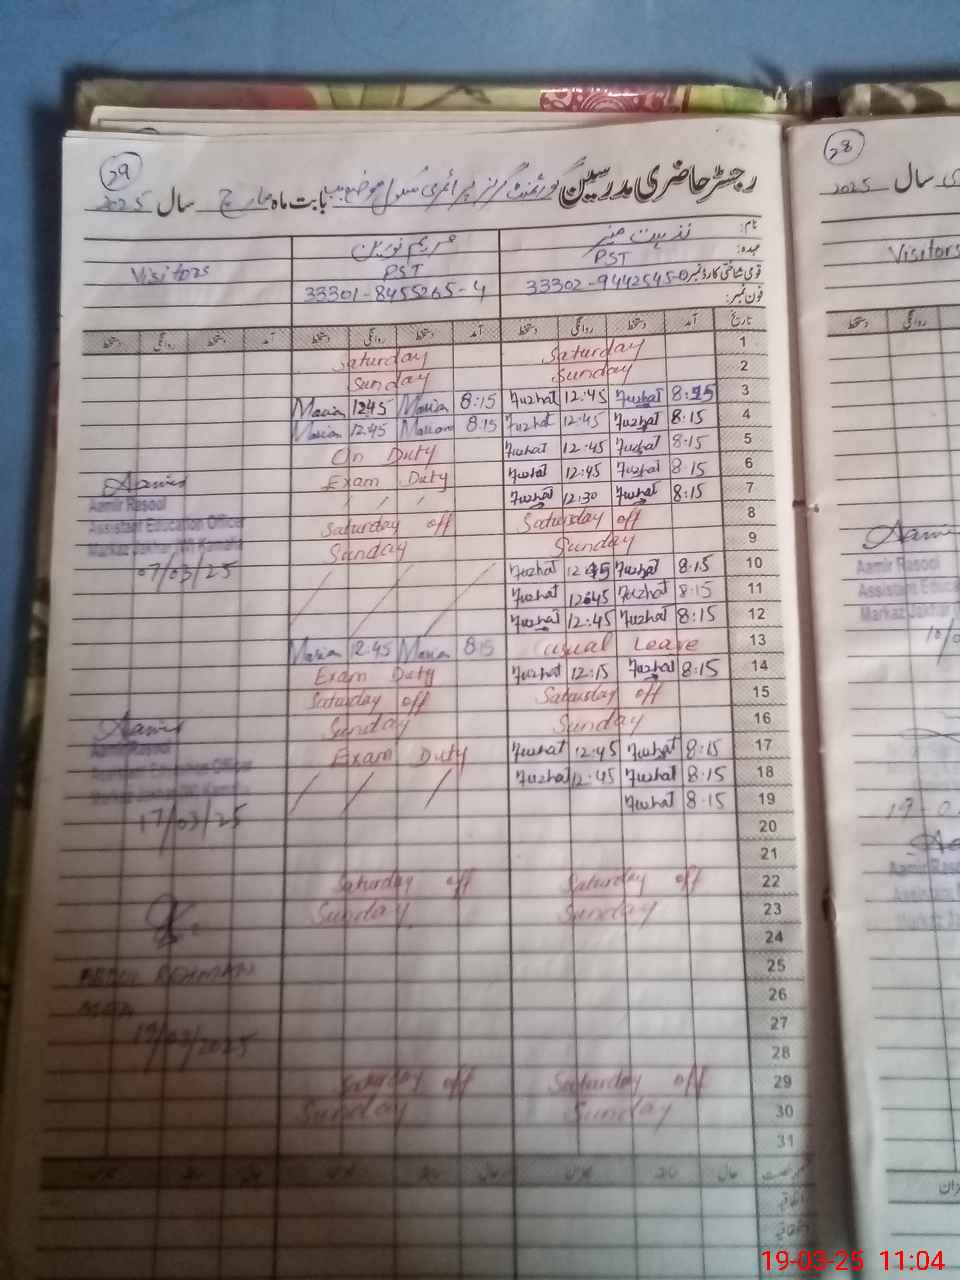 29
رجسٹر حاضری مدرسین گورنمنٹ گرلز پرائمری سکول بابت ماہ مارچ سال 2025
نام: نزہت منیر مریم نورین
عہدہ: PST PST Visitors
قومی شناختی کارڈ نمبر 33302-9442545-0 33301-8455265-4
فون نمبر:
تاریخ آمد دستخط روانگی دستخط آمد دستخط روانگی دستخط آمد دستخط روانگی دستخط
Saturday Saturday 1
Sunday Sunday 2
Maria 12:45 Maria 8:15 Fuzhat 12:45 Fuzhat 8:15 3
Maria 12:45 Maria 8:15 Fuzhat 12:45 Fuzhat 8:15 4
On Duty Fuzhat 12:45 Fuzhat 8:15 5
Exam Duty Fuzhat 12:45 Fuzhat 8:15 6
Fuzhat 12:30 Fuzhat 8:15 7
Saturday off Saturday off 8
Sunday Sunday 9
Fuzhat 12:45 Fuzhat 8:15 10
Fuzhat 12:45 Fuzhat 8:15 11
Fuzhat 12:45 Fuzhat 8:15 12
Maria 12:45 Maria 8:15 Casual Leave 13
Exam Duty Fuzhat 12:15 Fuzhat 8:15 14
Saturday off Saturday off 15
Sunday Sunday 16
Exam Duty Fuzhat 12:45 Fuzhat 8:15 17
Fuzhat 12:45 Fuzhat 8:15 18
Fuzhat 8:15 19
20
21
Saturday off Saturday off 22
Sunday Sunday 23
24
25
26
27
28
Saturday off Saturday off 29
Sunday Sunday 30
31
Aamir
Aamir Rasool
Assistant Education Officer
07/03/25
Aamir
Aamir Rasool
Assistant Education Officer
17/03/25
ABDUL REHMAN
19/03/2025
28
سال 2025
Visitors
دستخط روانگی
Aamir
Aamir Rasool
Assistant Educa
19-03-25 11:04